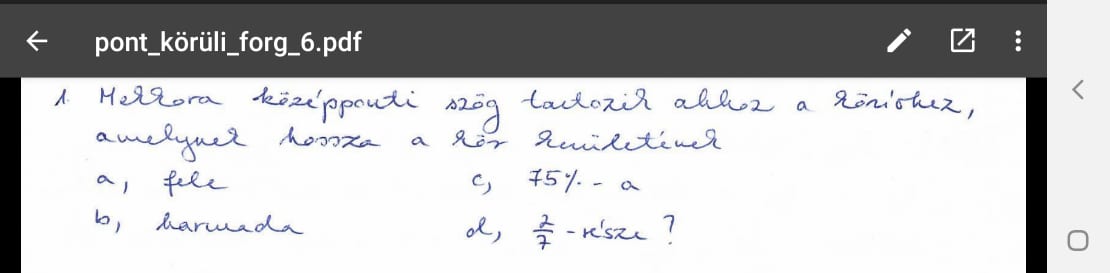 pont_körüli_forg_6.pdf
1. Mekkora középponti szög tartozik ahhoz a körívhez,
amelynek hossza a kör kerületének
a, fele c, 75%-a
b, harmada d, 2/7-része?